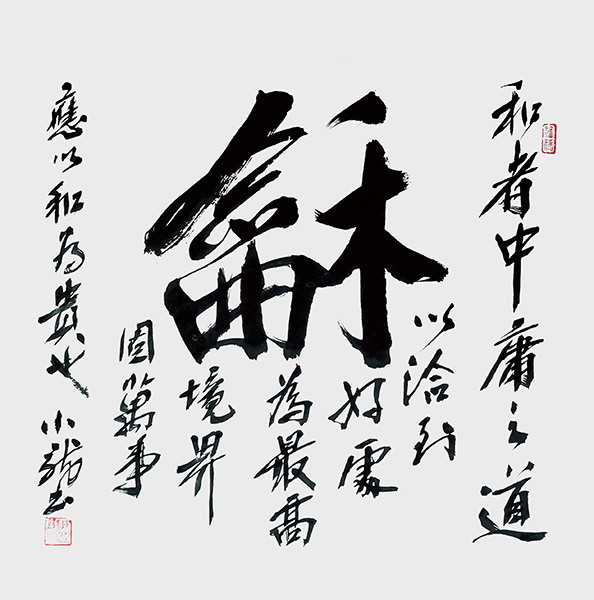 龢
和者中庸之道
以洽到
好處
為最高
境界
固萬事
應以和為貴也
小龍書